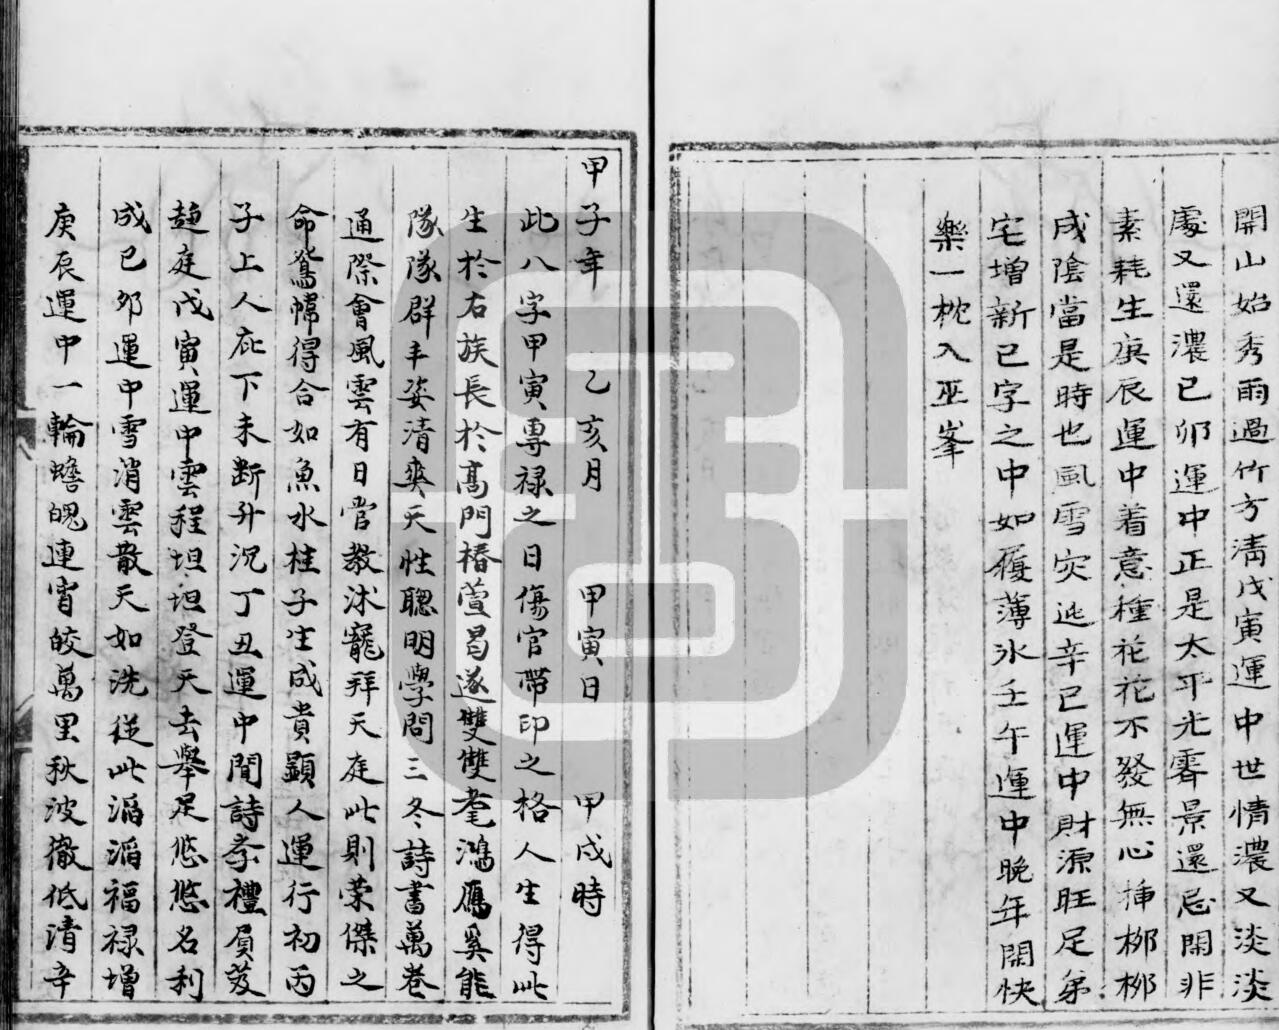 開山始秀雨過竹方清戊寅運中世情濃又淡淡
處又還濃已卯運中正是太平光霽景還忌閑非
素耗生庚辰運中着意種花花不發無心挿栁栁
成陰當是時也風雪灾迍辛已運中財源旺足弟
宅增新已字之中如履薄氷壬午運中晚年閑快
樂一枕入巫峯
甲子年 乙亥月 甲寅日 甲戌時
此八字甲寅專祿之日傷官帶印之格人生得此
生於右族長於高門椿萱昌遂雙雙耄鴻鴈奚能
隊隊群丰姿清爽天性聰明學問三冬詩書萬卷
通際會風雲有日常教沐寵拜天庭此則荣傑之
命鴛幃得合如魚水桂子生成貴顯人運行初丙
子上人庇下未断升沉丁丑運中聞詩孝禮負笈
趍庭戊寅運中雲程坦坦登天去舉足悠悠名利
成已夘運中雪消雲散天如洗從此滔滔福祿增
庚辰運中一輪蟾魄連宵皎萬里秋波徹低清辛